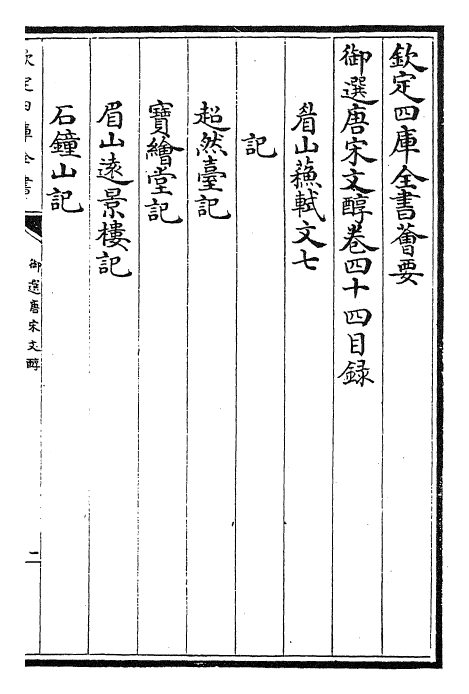 欽定四庫全書薈要
御選唐宋文醇卷四十四目録
眉山蘓軾文七
記
超然臺記
寶繪堂記
眉山遠景樓記
石鐘山記
欽定四庫全書
御選唐宋文醇
二